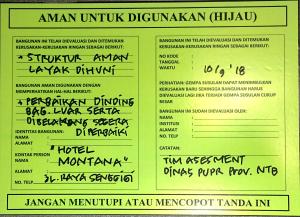 AMAN UNTUK DIGUNAKAN (HIJAU)
BANGUNAN INI TELAH DIEVALUASI DAN DITEMUKAN
KERUSAKAN-KERUSAKAN RINGAN SEBAGAI BERIKUT:
* STRUKTUR AMAN
LAYAK DIHUNI
BANGUNAN AMAN DIGUNAKAN DENGAN
MEMPERHATIKAN HAL-HAL BERIKUT:
* PERBAIKAN DINDING
BAG. LUAR SERTA
DIBELAKANG SEGERA
DIPERBAIKI
IDENTITAS BANGUNAN:
NAMA
ALAMAT
KONTAK PERSON
NAMA
"HOTEL
MONTANA"
ALAMAT
NO. TELP
JL. RAYA SENGGIGI
BANGUNAN INI TELAH DIEVALUASI DAN DITEMUKAN
KERUSAKAN-KERUSAKAN RINGAN SEBAGAI BERIKUT:
NO KODE
TANGGAL
WAKTU
10/9 '18
PERHATIAN: GEMPA SUSULAN DAPAT MENIMBULKAN
KERUSAKAN BARU SEHINGGA BANGUNAN HARUS
DIEVALUASI LAGI JIKA TERJADI GEMPA SUSULAN CUKUP
BESAR
BANGUNAN INI SUDAH DIEVALUASI OLEH:
NAMA
INSTITUSI
ALAMAT
NO. TELP
CATATAN:
TIM ASESMENT
DINAS PUPR PROV. NTB
JANGAN MENUTUPI ATAU MENCOPOT TANDA INI